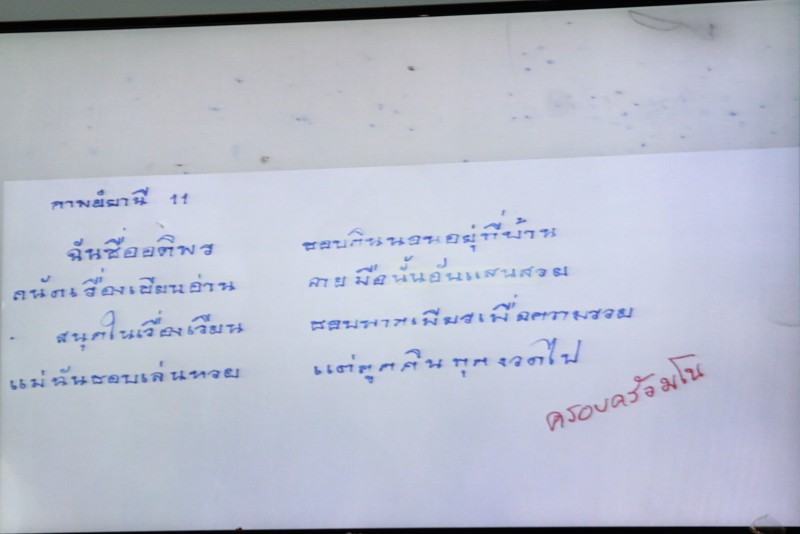 กาพย์ยานี 11
ฉันชื่ออติพร ชอบกินนอนอยู่ที่บ้าน
ถนัดเรื่องเขียนอ่าน ลายมือนั้นอันแสนสวย
สนุกในเรื่องเรียน ชอบพากเพียรเพื่อความรวย
แม่ฉันชอบเล่นหวย แต่ถูกกินทุกงวดไป
ครอบครัวมโน